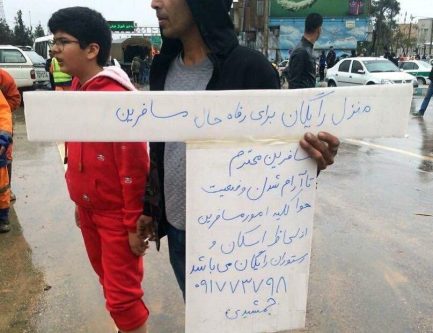 منزل رایگان برای رفاه حال مسافرین
مسافرین محترم
تا آرام شدن وضعیت
هوا کلیه امور مسافرین
از لحاظ اسکان و
رستوران رایگان می باشد
۰۹۱۷۷۳۷۹۸
جمشیدی